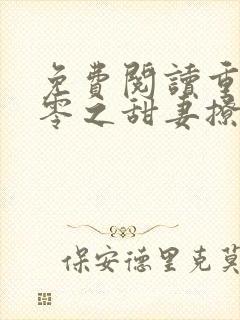 免費閱讀重
零之甜妻撩
保安德里克莫